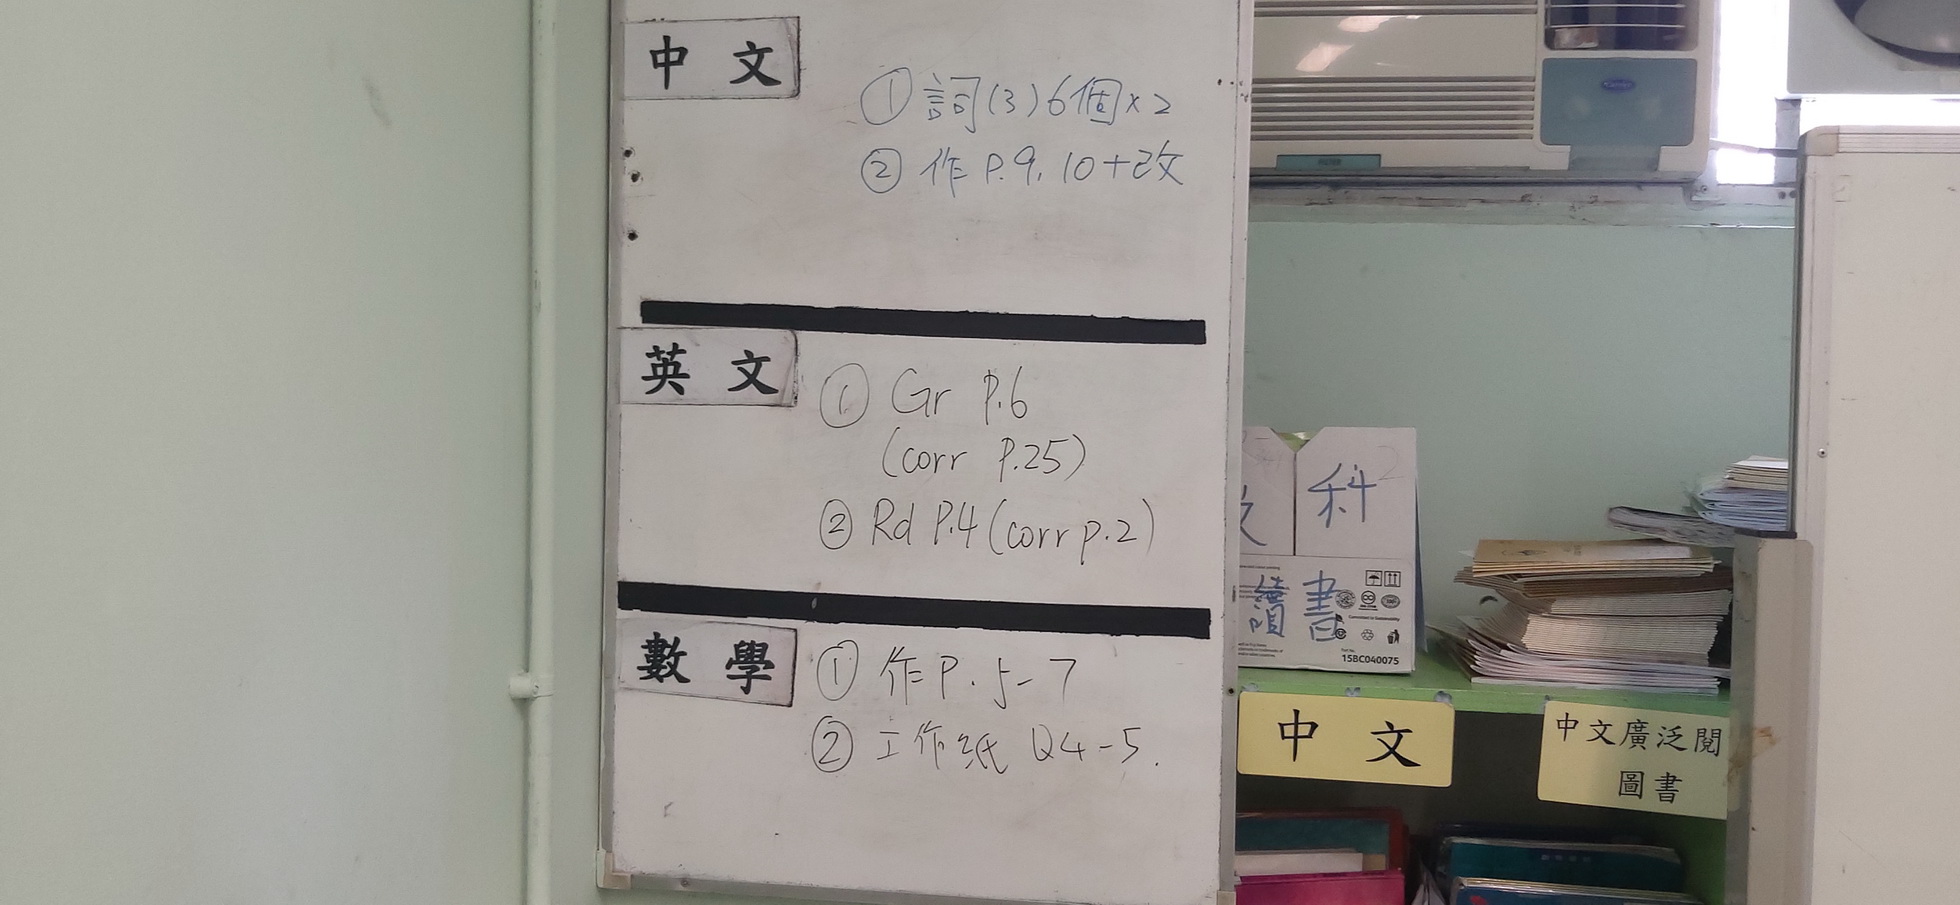 中文
① 詞(3)6個×2
② 作 P.9, 10+改
英文
① Gr P.6
(corr P.25)
② Rd P.4 (corr p.2)
數學
① 作 P. 5-7
② 工作紙 Q4-5.
科
讀書
15BC040075
中文
中文廣泛閱
圖書